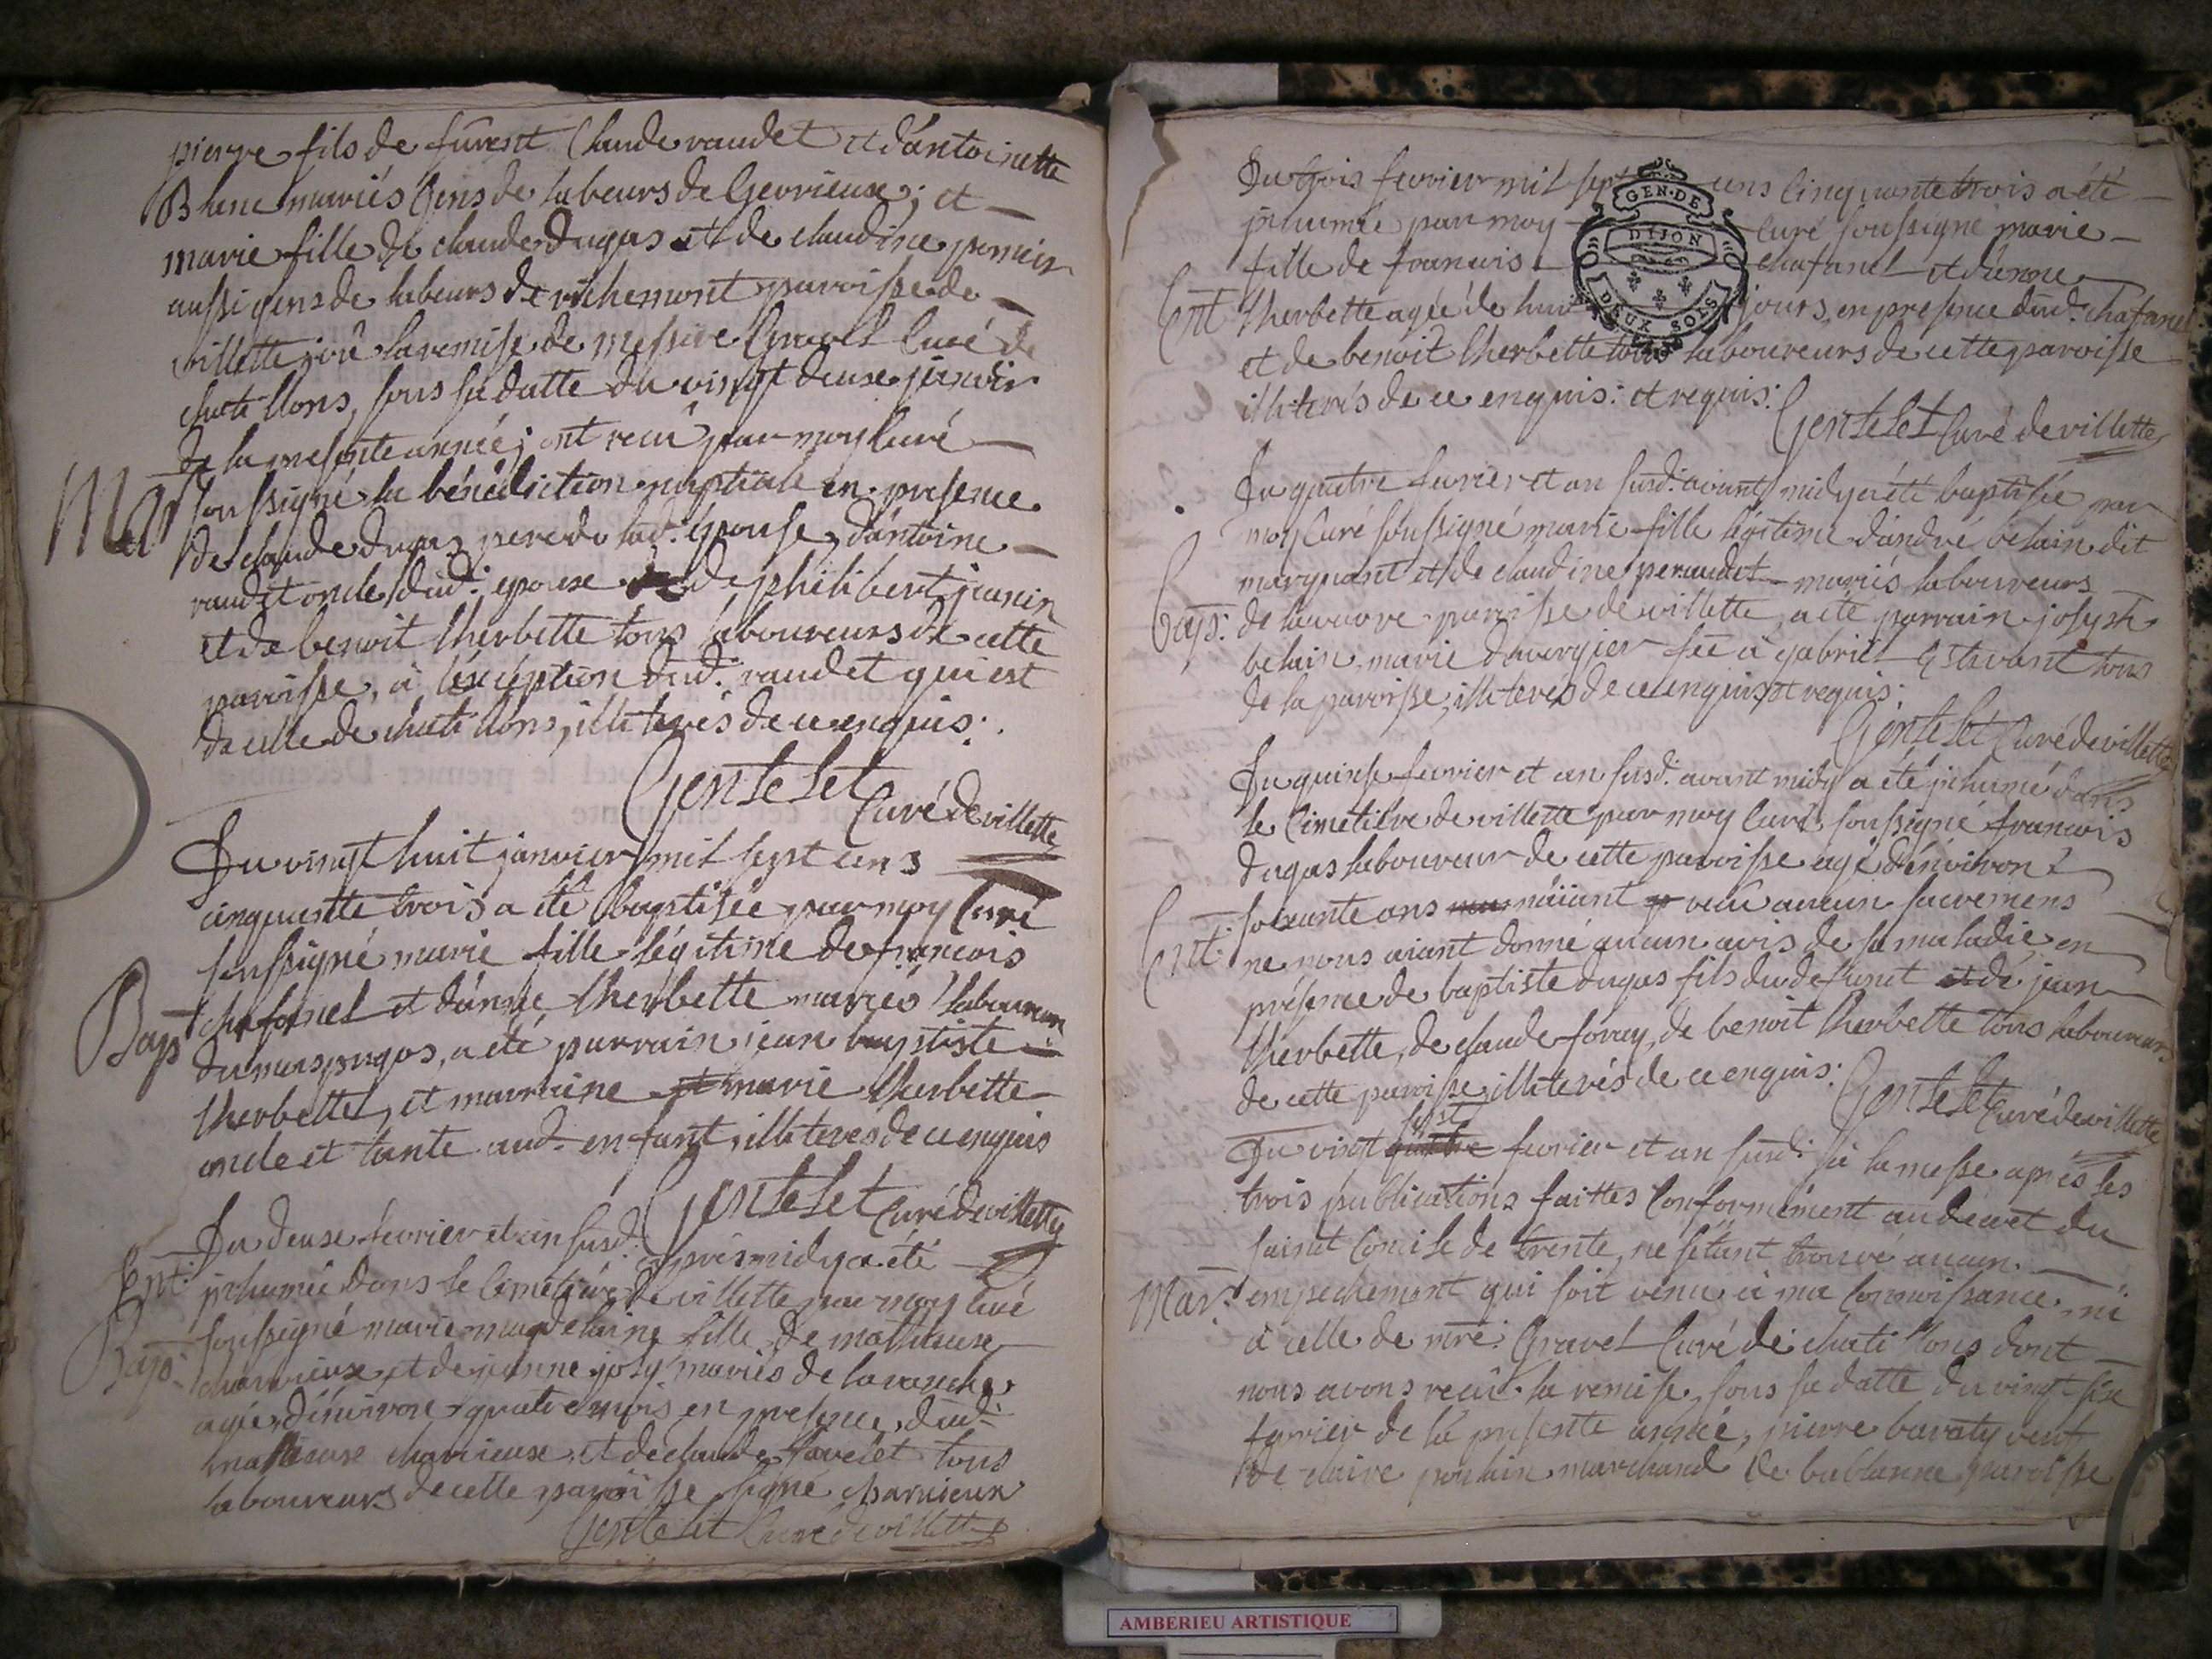 pierre fils de furent Claude raudet et d'antoinette
Blanc mariés Gens de labeurs de Gevrieuse; et
marie fille de claude dugas et de claudine
aussi gens de labeurs de richemont paroisse de
villette; vû la remise de messire Gravel Curé de
chatillons, sous sa datte du vingt deuse janvir
de la presente année; ont recû par moy Curé
Mar soussigné la bénédiction nuptiale en presence
de claude dugas pere de lad: épouse, d'antoine
raudet oncle dud: epouse de philibert janin
et de benoit Lherbette tous laboureurs de cette
paroisse, à l'exception dud: raudet qui est
de celle de chatillons, illiterés de ce enquis:
Gentelet
Curé de villette
Du vingt huit janvier mil sept cens
cinquantte trois a été baptisée par moy Curé
soussigné marie fille légitime de francois
Bapt chafanel et d'anne Lherbette mariés laboureurs
du mas pugos, a été parrain jean baptiste
Lherbette, et marraine marie Lherbette
oncle et tante aud: enfant, illiteres de ce enquis
Gentelet Curé de villette
Du deuse fevrier et an susd: apres midy a été
Ent: inhumée dans le Cimetiere de villette par moy Curé
soussigné marie magdelaine fille de mathieuse
Bap: charvieux et de jeanne joly mariés de
agée d'énviron quatre mois en presence dud:
mathieuse charvieuse et de claude favelet tous
laboureurs de cette paroisse signé charvieux
Gentelet Curé de villette
GEN. DE
DIJON
DEUX SOLS
Du trois fevrier mil sept cens Cinquante trois a été
inhumée par moy Curé soussigné marie
fille de francois chafanel et d'anne
Ent Lherbette agée de huit jours, en presence dud: chafanel
et de benoit Lherbette tous laboureurs de cette paroisse
illiterés de ce enquis: et requis:
Gentelet Curé de villette
Du quatre fevrier et an susd: avant midy a été baptisée par
moy Curé soussigné marie fille légitime d'andré belain dit
marquant et de claudine peraudet mariés laboureurs
Bap: de paroisse de villette, a été parrain joseph
belain, marie davergier fee à gabriel tous
de la paroisse, illiterés de ce enquis et requis:
Gentelet Curé de villette
Du quinse fevrier et an susd: avant midy a été inhumé dans
le Cimetiere de villette par moy Curé soussigné francois
dugas laboureur de cette paroisse agé d'énviron
soixante ans n'aiant recû aucun sacremens
Ent: ne nous aiant donné aucun avis de sa maladie en
présence de baptiste dugas fils du defunct et de jean
Lherbette, de claude foray, de benoit Lherbette tous laboureurs
de cette paroisse illiterés de ce enquis:
Gentelet Curé de villette
sept
Du vingt quatre fevrier et an susd: à la messe après les
trois publications faittes Conformément au decret du
sainct Concile de trente, ne s'étant trouvé aucun
Mar: empechement qui soit venu à ma Connoissance ni
à celle de mre: Gravel Curé de chatillons dont
nous avons recû la remise, sous sa datte du vingt sixe
fevrier de la presente année, pierre baraty veuf
de claire poulain marchand de bublanne paroisse
AMBERIEU ARTISTIQUE